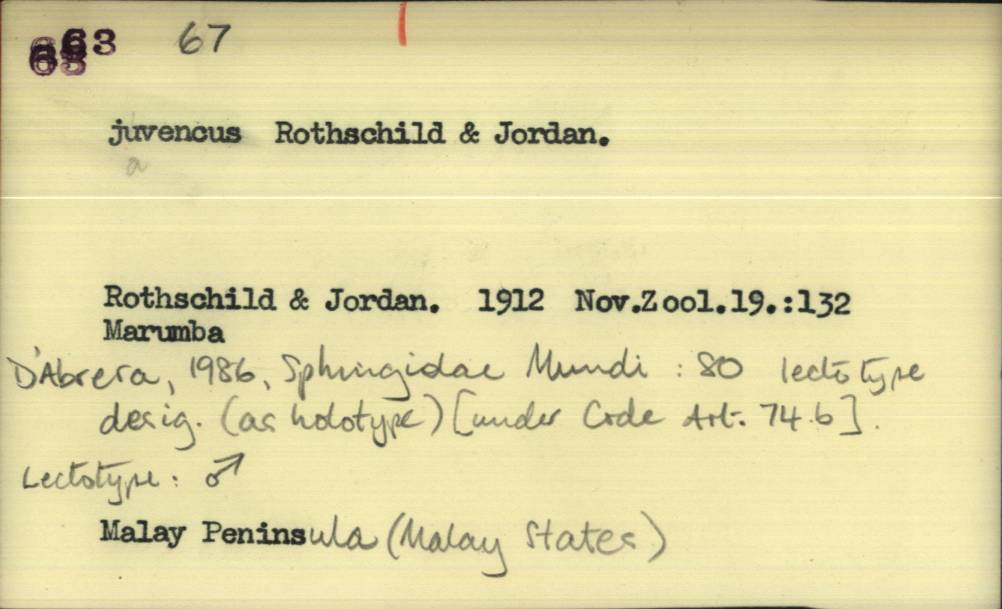 663 67
juvencus Rothschild & Jordan.
a
Rothschild & Jordan. 1912 Nov.Zool.19.:132
Marumba
D'Abrera, 1986, Sphingidae Mundi : 80 lectotype
desig. (as holotype) [under Code Art. 74.b].
Lectotype: ♂
Malay Peninsula (Malay States)